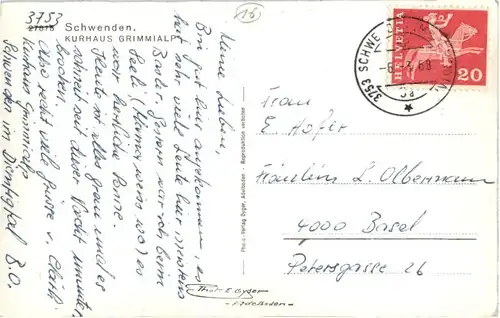 3753
27878
Schwenden.
KURHAUS GRIMMIALP
16
Meine Lieben,
Bin gut hier angekommen, es
hat sehr viele Leute hier, meistens
Basler. Gestern war ich beim
Seeli (Mami weiss wo) es
war herrliche Sonne.
Heute ist alles grau und er
schneit seit dieser Nacht munter
Brocken.
Also recht viele Grüsse v.
Kurhaus Grimmialp
Schwenden im Diemtigtal B.O.
Photo-Verlag Gyger, Adelboden Reproduktion verboten
Photo E. Gyger
- Adelboden -
3753 SCHWE
HELVETIA
20
Frau
E. Hofer
Fräulein L. Obermann
4000 Basel
Petersgasse 26